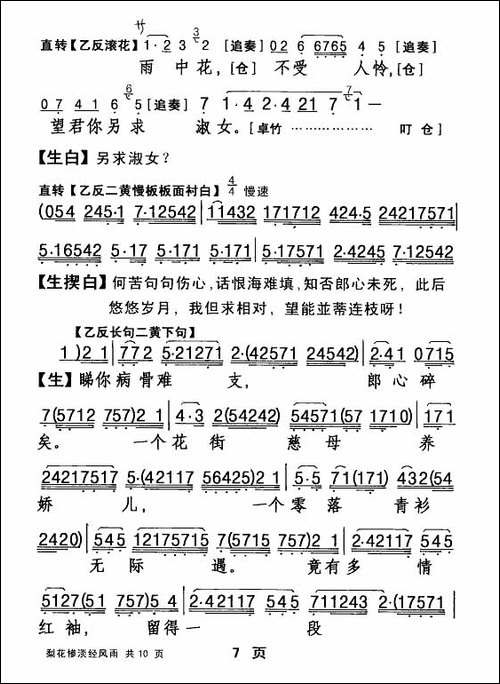 サ
直转【乙反滚花】1·2 3 3/2 [追奏] 02 6 6765 4 5 [追奏]
雨 中 花,[仓] 不 受 人 怜,[仓]
07 41 6 6/5 [追奏] 7 1·4 2·4 21 7 7/1 —
望君你另求 淑 女。[卓竹 ……………… 叮 仓]
【生白】另求淑女?
直转【乙反二黄慢板板面衬白】4/4 慢速
(054 245·1 7·12542 | 11432 171712 424·5 24217571 |
5·16542 5·17 5·171 5·171 | 5·17571 2·4245 7·12542 |
【生揳白】何苦句句伤心,话恨海难填,知否郎心未死,此后
悠悠岁月,我但求相对,望能並蒂连枝呀!
【乙反长句二黄下句】
1 ) 2 1 | 772 5·21271 2·(42571 24542) | 2·41 0715
【生】睇你病 骨难 支, 郎 心 碎
7(5712 757) 2 1 | 4·3 2(54242) 54571(57 1710) | 171
矣。 一个 花 街 慈 母 养
24217517 5·(42117 56425) 2 1 | 5·5 71(171) 432(54
娇 儿, 一个 零 落 青 衫
2420) | 545 12175715 7(5715 757) 2 1 | 2·42117 545
无 际 遇。 竟有 多 情
5127(51 7571) 5 4 | 2·42117 545 711243 2·(42171
红 袖, 留得 一 段
梨花惨淡经风雨 共 10 页 7 页